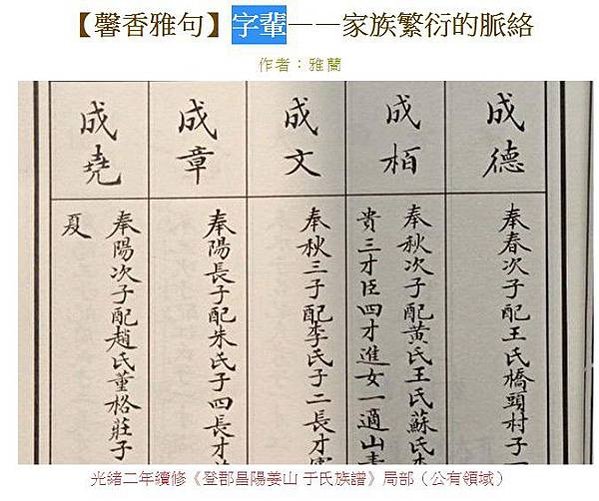 【馨香雅句】字輩——家族繁衍的脈絡
作者：雅蘭
成德
奉春次子配王氏橋頭村子一
成栢
奉秋次子配黃氏王氏蘇氏
貴三才臣四才進女一適山
成文
奉秋三子配李氏子二長才
成章
奉陽長子配朱氏子四長才
成堯
奉陽次子配趙氏董格莊子
夏
光緒二年續修《登郡昌陽姜山 于氏族譜》局部（公有領域）